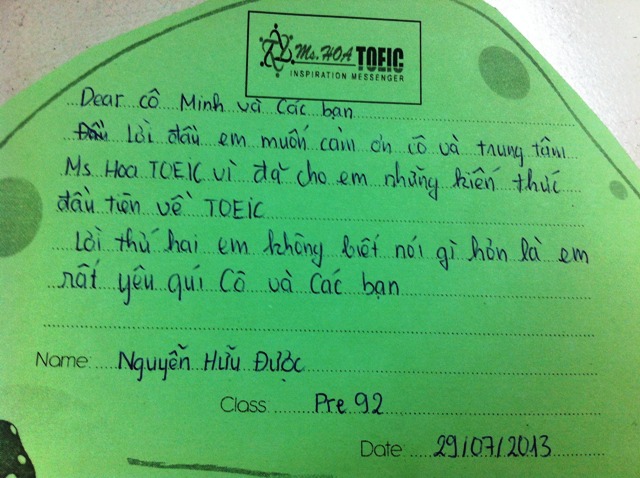 Ms. HOA TOEIC
INSPIRATION MESSENGER
Dear cô Minh và Các bạn
Lời đầu em muốn cảm ơn cô và trung tâm
Ms Hoa TOEIC vì đã cho em những kiến thức
đầu tiên về TOEIC
Lời thứ hai em không biết nói gì hơn là em
rất yêu quí Cô và Các bạn
Name: Nguyễn Hữu Được
Class: Pre 92
Date: 29/07/2013